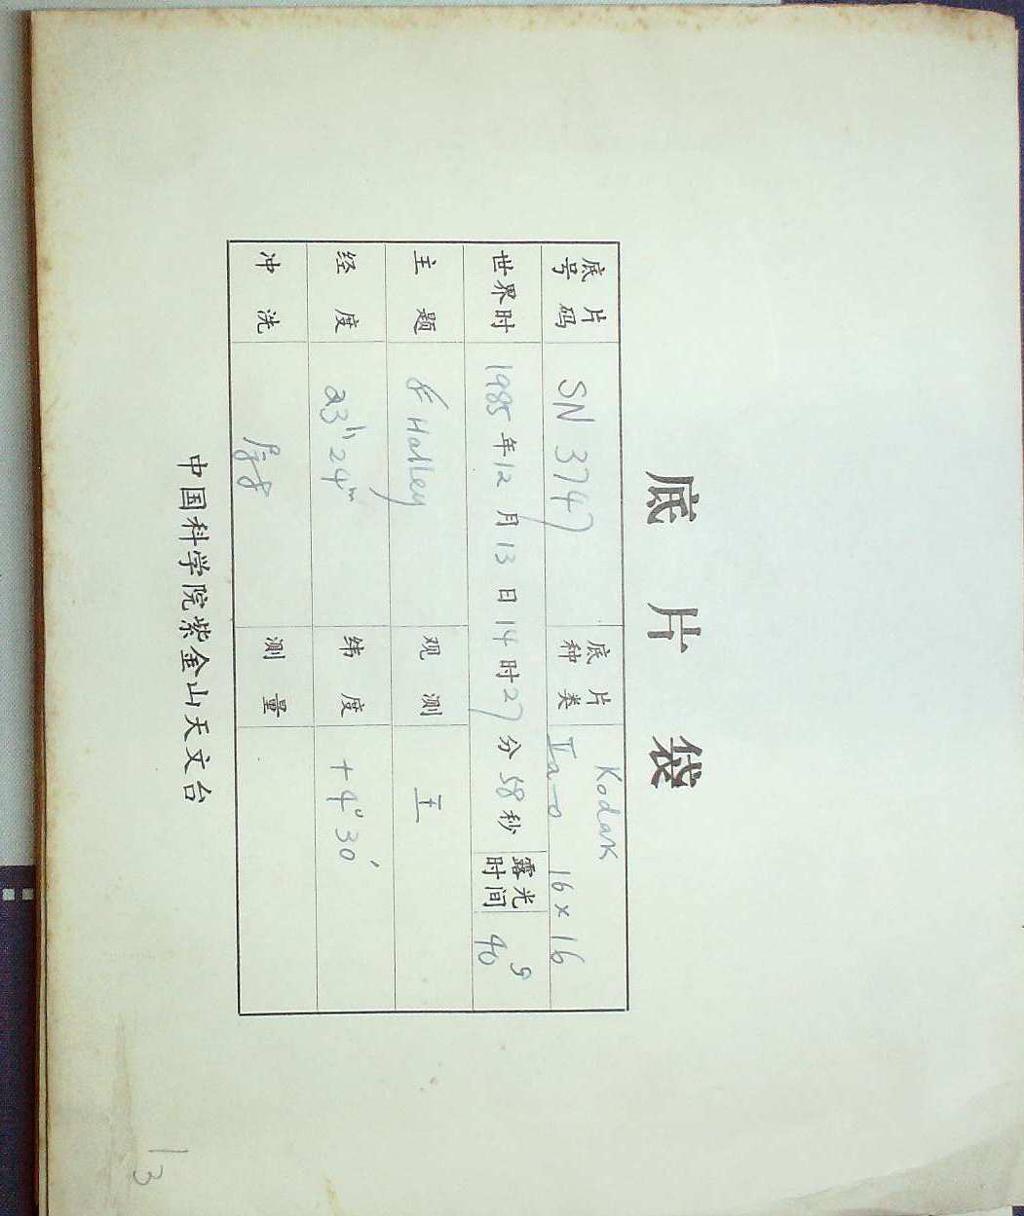 底片袋
底片号码 SN 3747 底片种类 Kodak IIa-O 16×16
世界时 1985年12月13日14时27分58秒 露光时间 40s
主题 Halley 观测 王
经度 23h24m 纬度 +4°30′
冲洗 测量
中国科学院紫金山天文台
13